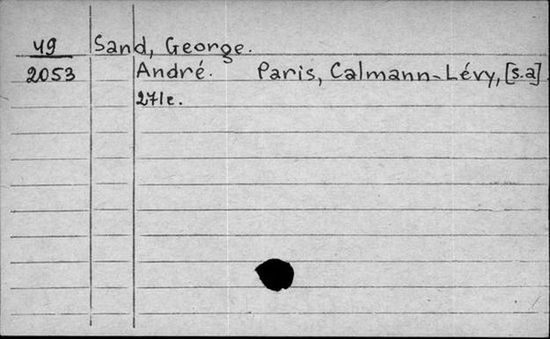 49 Sand, George.
2053 André. Paris, Calmann-Lévy, [s.a]
271c.